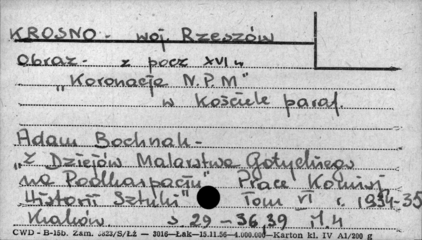 KROSNO - woj. Rzeszów
Obraz - z pocz XVI w
"Koronacja N.P.M"
w Kościele paraf.
Adam Bochnak -
"Z Dziejów Malarstwa Gotyckiego
na Podkarpaciu" Prace Komisji
Historii Sztuki" Tom VI r. 1934-35
Kraków. s 29-36,39
CWD - B-15b. Zam. S/Łż — 3016—Łak—15.11.56—4.000.000—Karton kl. IV. A1/200 g